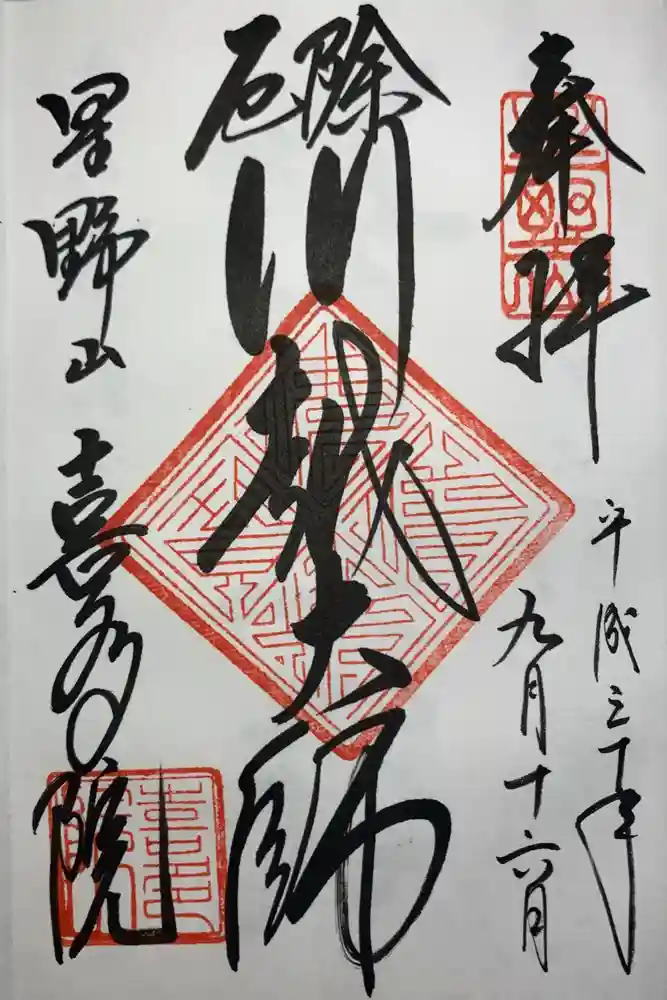 奉拝
平成三十年
九月十六日
厄除
川越大師
星野山 喜多院